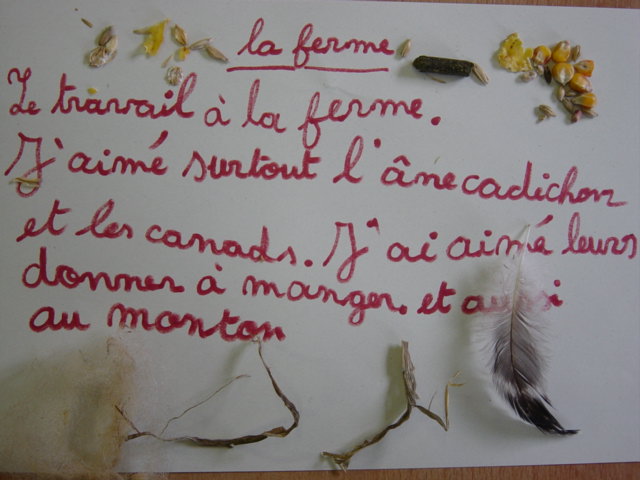 la ferme
Le travail à la ferme.
J'aimé surtout l'âne cadichon
et les canads. J'ai aimé leurs
donner à manger. et aussi
au monton